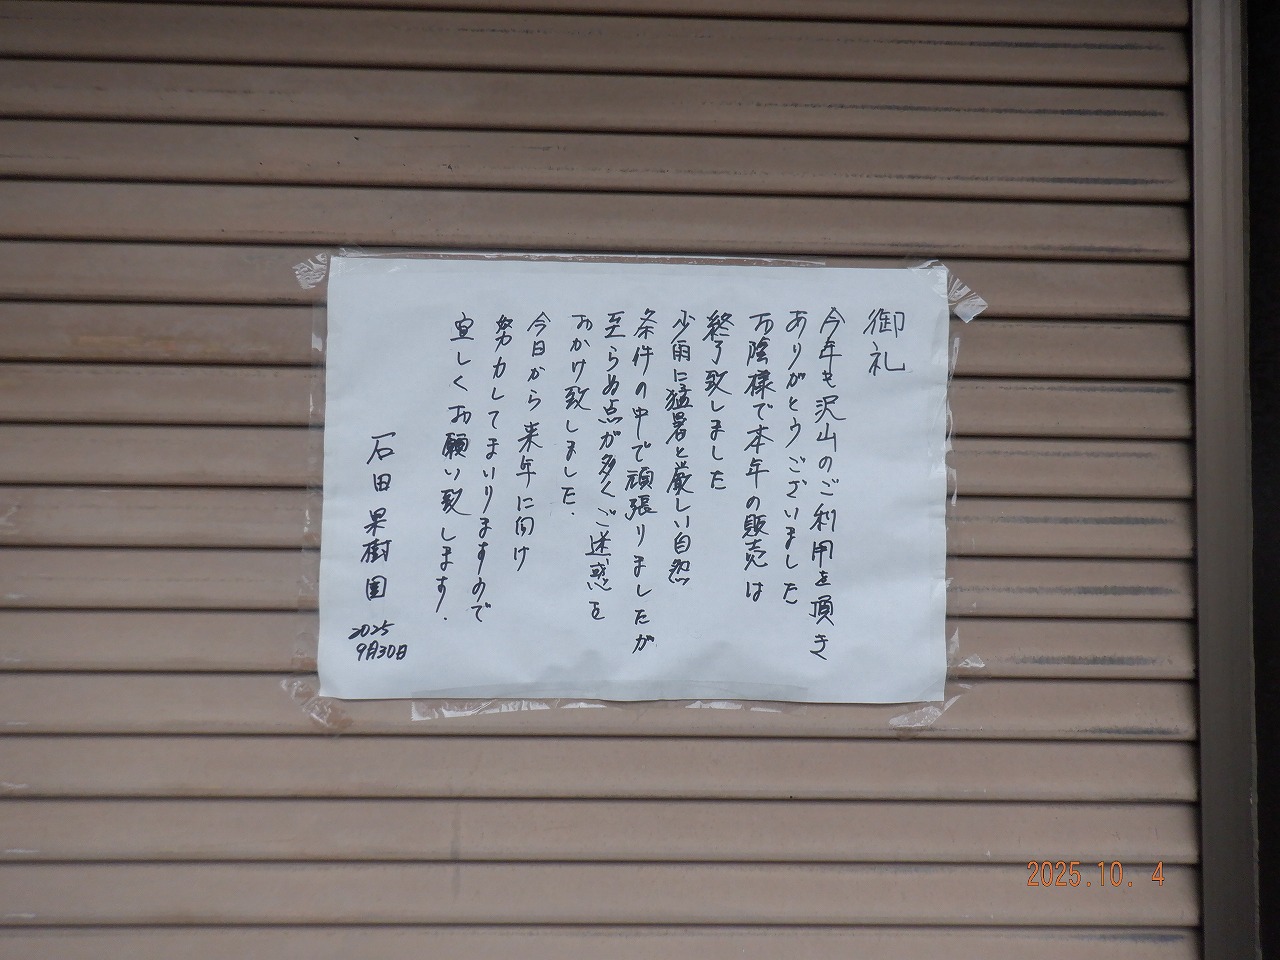 御礼
今年も沢山のご利用を頂き
ありがとうございました
お陰様で本年の販売は
終了致しました
少雨に猛暑と厳しい自然
条件の中で頑張りましたが
至らぬ点が多くご迷惑を
おかけ致しました.
今日から来年に向け
努力してまいりますので
宜しくお願い致します.
石田果樹園
2025
9月30日
2025.10. 4